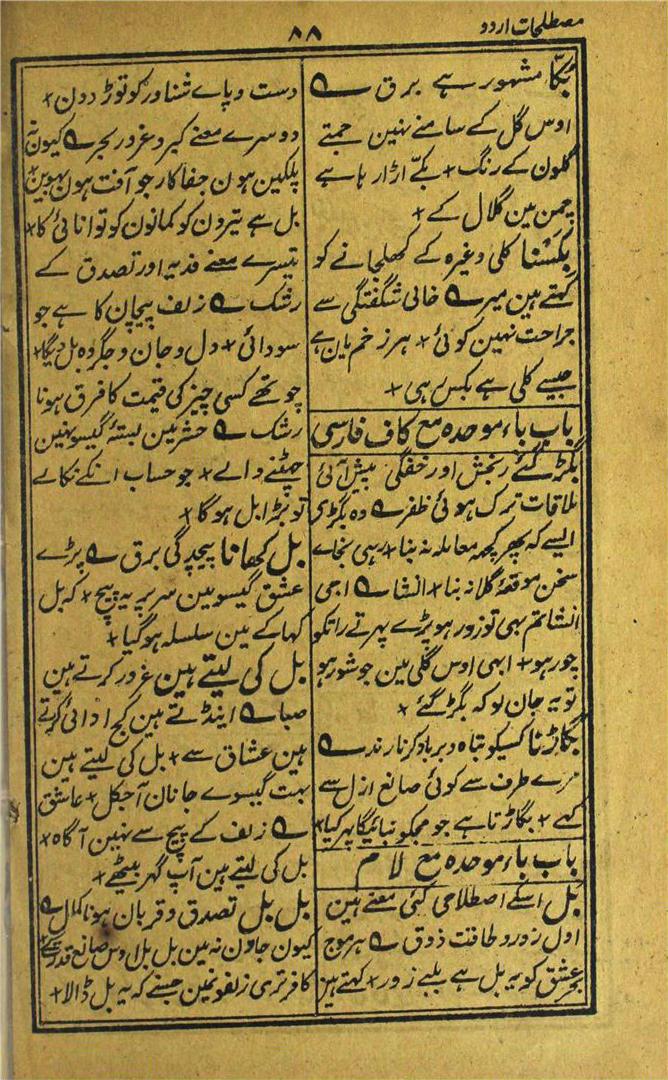 مصطلحات اردو
۸۸
بُکّا مشہور ہے برق ؎
اوس گل کے سامنے نہین جمتے
گلون کے رنگ + بکّے اڑا رہا ہے
چمن مین گلال کے +
بِکَسْنا کلی وغیرہ کے کھلجانے کو
کہتے ہین میر ؎ خالی شگفتگی سے
جراحت نہین کوئی + ہر زخم یان ہے
جیسے کلی ہے بکس رہی +
باب باء موحدہ مع کاف فارسی
بگڑ گئے رنجش اور خفگی پیش آئی
ملاقات ترک ہوئی ظفر ؎ وہ بگڑی
ایسے کہ پھر کچھ معاملہ نہ بنا + رہی نجاے
سخن موقعۂ گلا نہ بنا + انشا ؎ اجی
انشا تم بھی تو زور ہو پڑے پہرتے راتکو
چور ہو + ابھی اوس گلی مین جو شور ہو
تو یہ جان لو کہ بگڑ گئے +
بگاڑنا کسیکو تباہ و برباد کرنا رند ؎
مرے طرف سے کوئی صانع ازل سے
کہے + بگاڑتا ہے جو مجکو بنائیگا پہر کیا +
باب باء موحدہ مع لام
بل اسکے اصطلاحی کئی معنے ہین
اول زور و طاقت ذوق ؎ ہر موج
بحر عشق کو یہ بل ہے بلبے زور + کہتے ہین
دست و پاے شناور کو توڑ دون +
دوسرے معنے کبر و غرور بحر ؎ کیون نہ
پلکین ہون جفا کار جو آفت ہون بہوین +
بل ہے تیرون کو کمانون کو توانائی کا +
تیسرے معنے فدیہ اور تصدق کے
رشک ؎ زلف پیچان کا ہے جو
سودائی + دل و جان و جگر وہ بل دیگا +
چوتھے کسی چیز کی قیمت کا فرق ہونا
رشک ؎ حشر مین بستۂ گیسو نہین
چھٹنے والے + جو حساب انکے نکالے
تو بڑا بل ہوگا +
بل کھانا پیچدگی برق ؎ پڑے
عشق گیسو مین سر پہ یہ پیچ + کہ بل
کہا کے مین سلسلہ ہوگیا +
بل کی لیتے ہین غرور کرتے ہین
صبا ؎ اینڈتے ہین کج ادائی کرتے
ہین عشاق سے + بل کی لیتے ہین
بہت گیسوے جانان آجکل + عاشق
؎ زلف کے پیچ سے نہین آگاہ +
بل کی لیتے ہین آپ گھر بیٹھے +
بل بل تصدق و قربان ہونا کمال ؎
کیون جاون نہ مین بل بل اوس صانع قدرت کے
کافر تری زلفونمین جسنے کہ یہ بل ڈالا +